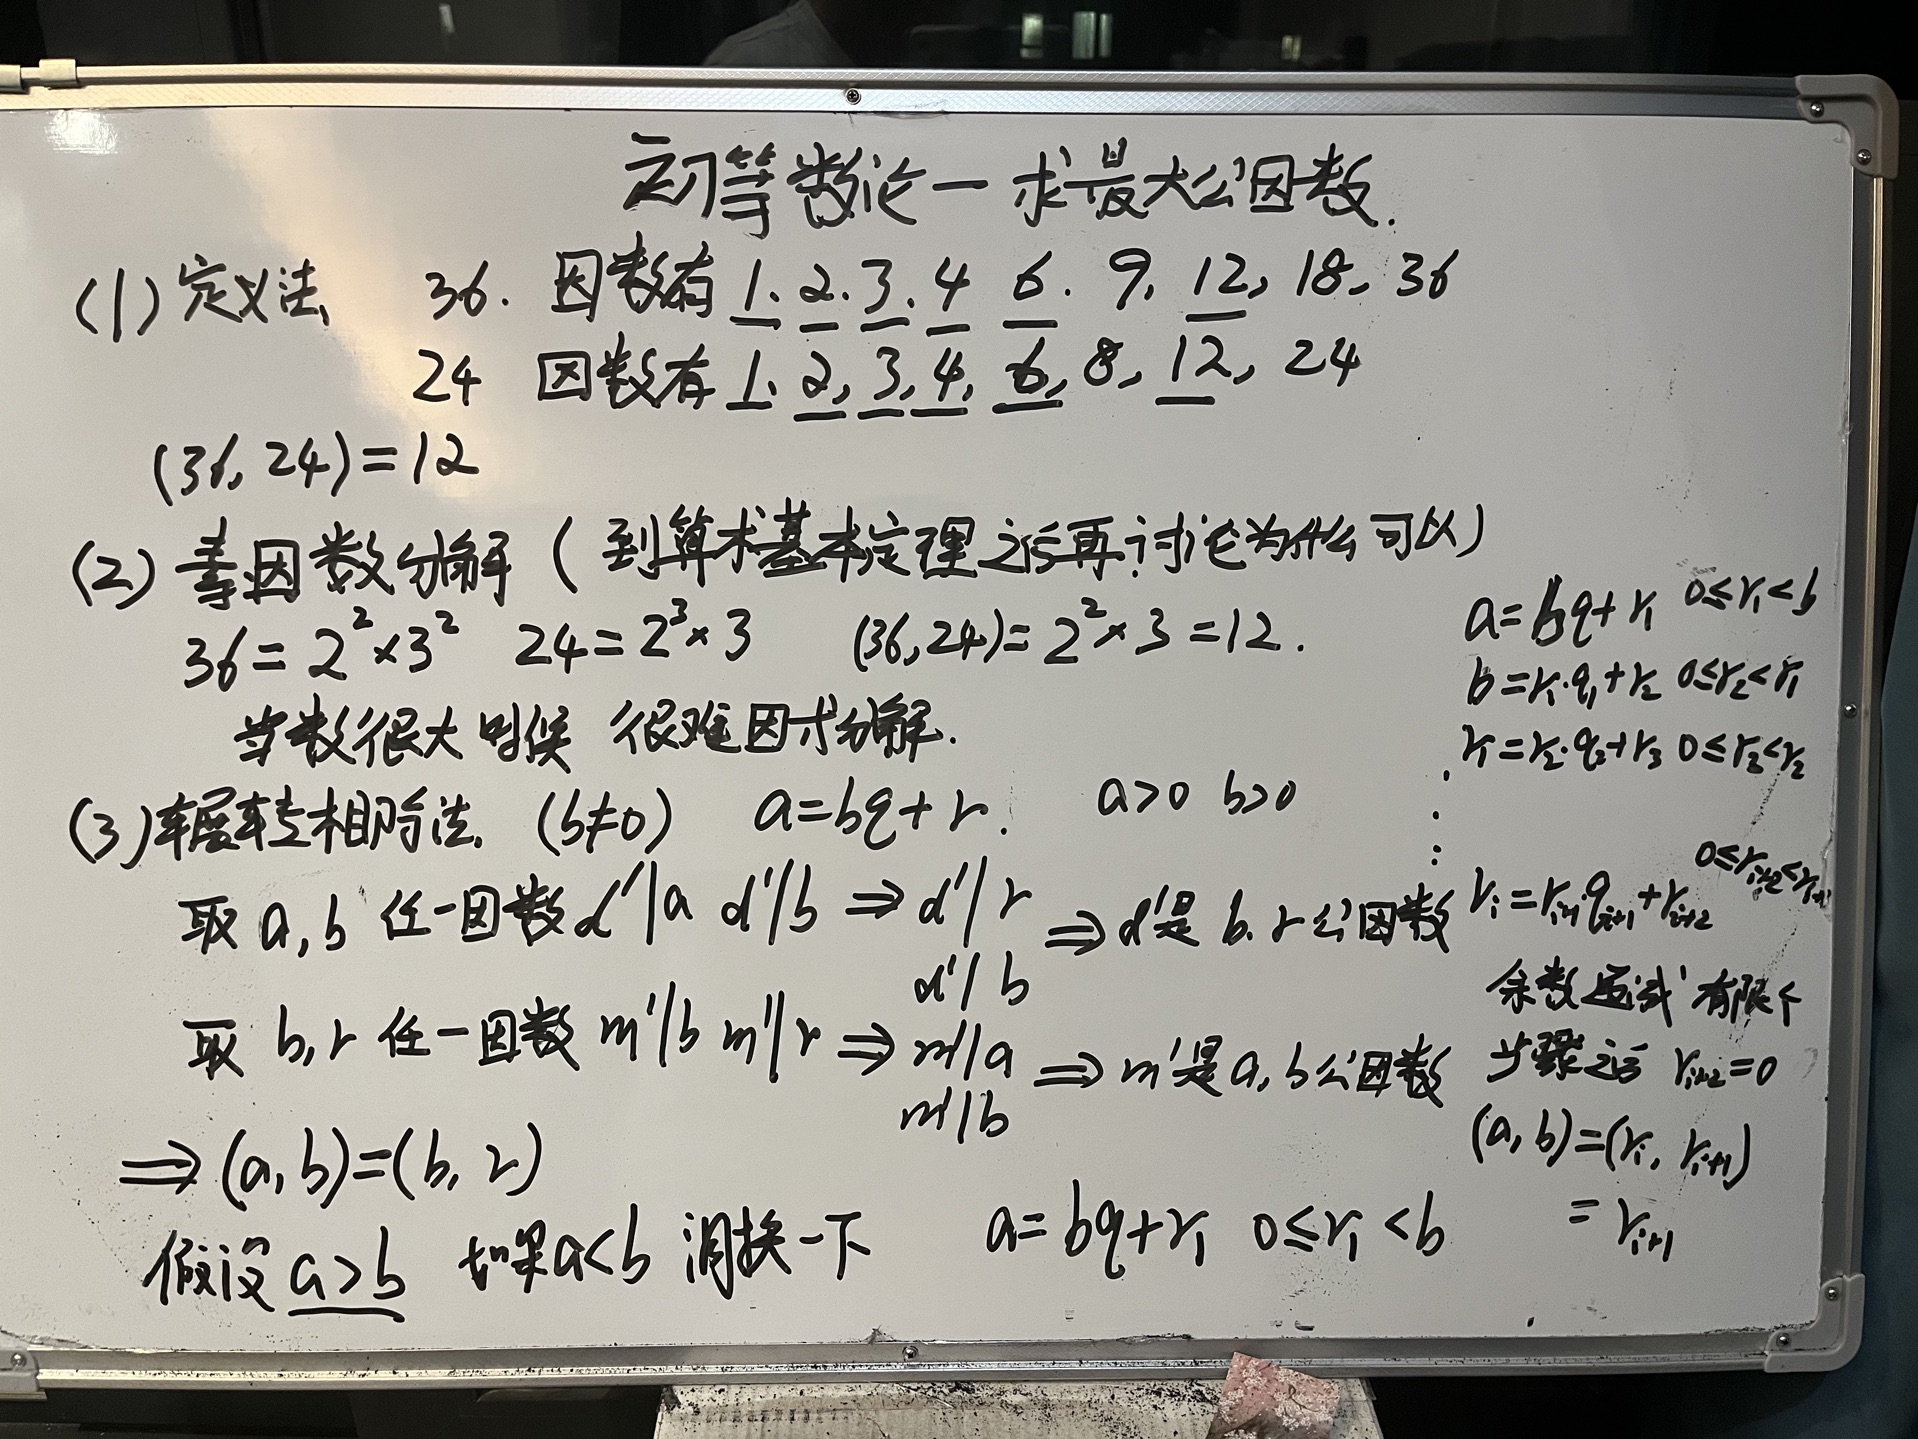 初等数论一求最大公因数.
(1) 定义法 36. 因数有 1. 2. 3. 4 6. 9. 12, 18. 36
24 因数有 1. 2, 3, 4, 6, 8, 12, 24
(36, 24) = 12
(2) 素因数分解 ( 到算术基本定理之后再讨论为什么可以 )
36 = 2² × 3² 24 = 2³ × 3 (36, 24) = 2² × 3 = 12 .
当数很大时候 很难因式分解.
(3) 辗转相除法. (b≠0) a = bq + r . a>0 b>0
取 a, b 任一因数 d'|a d'|b ⇒ d'|r
d'|b
⇒ d'是 b. r 公因数
取 b, r 任一因数 m'|b m'|r ⇒ m'|a
m'|b
⇒ m'是 a, b 公因数
⇒ (a, b) = (b, r)
假设 a>b 如果 a<b 调换一下 a = bq + r₁ 0 ≤ r₁ < b
a = bq + r₁ 0 ≤ r₁ < b
b = r₁·q₁ + r₂ 0 ≤ r₂ < r₁
r₁ = r₂·q₂ + r₃ 0 ≤ r₃ < r₂
⋮
rᵢ = rᵢ₊₁qᵢ₊₁ + rᵢ₊₂ 0 ≤ rᵢ₊₂ < rᵢ₊₁
余数递减 有限个
步骤之后 rᵢ₊₂ = 0
(a, b) = (rᵢ, rᵢ₊₁)
= rᵢ₊₁